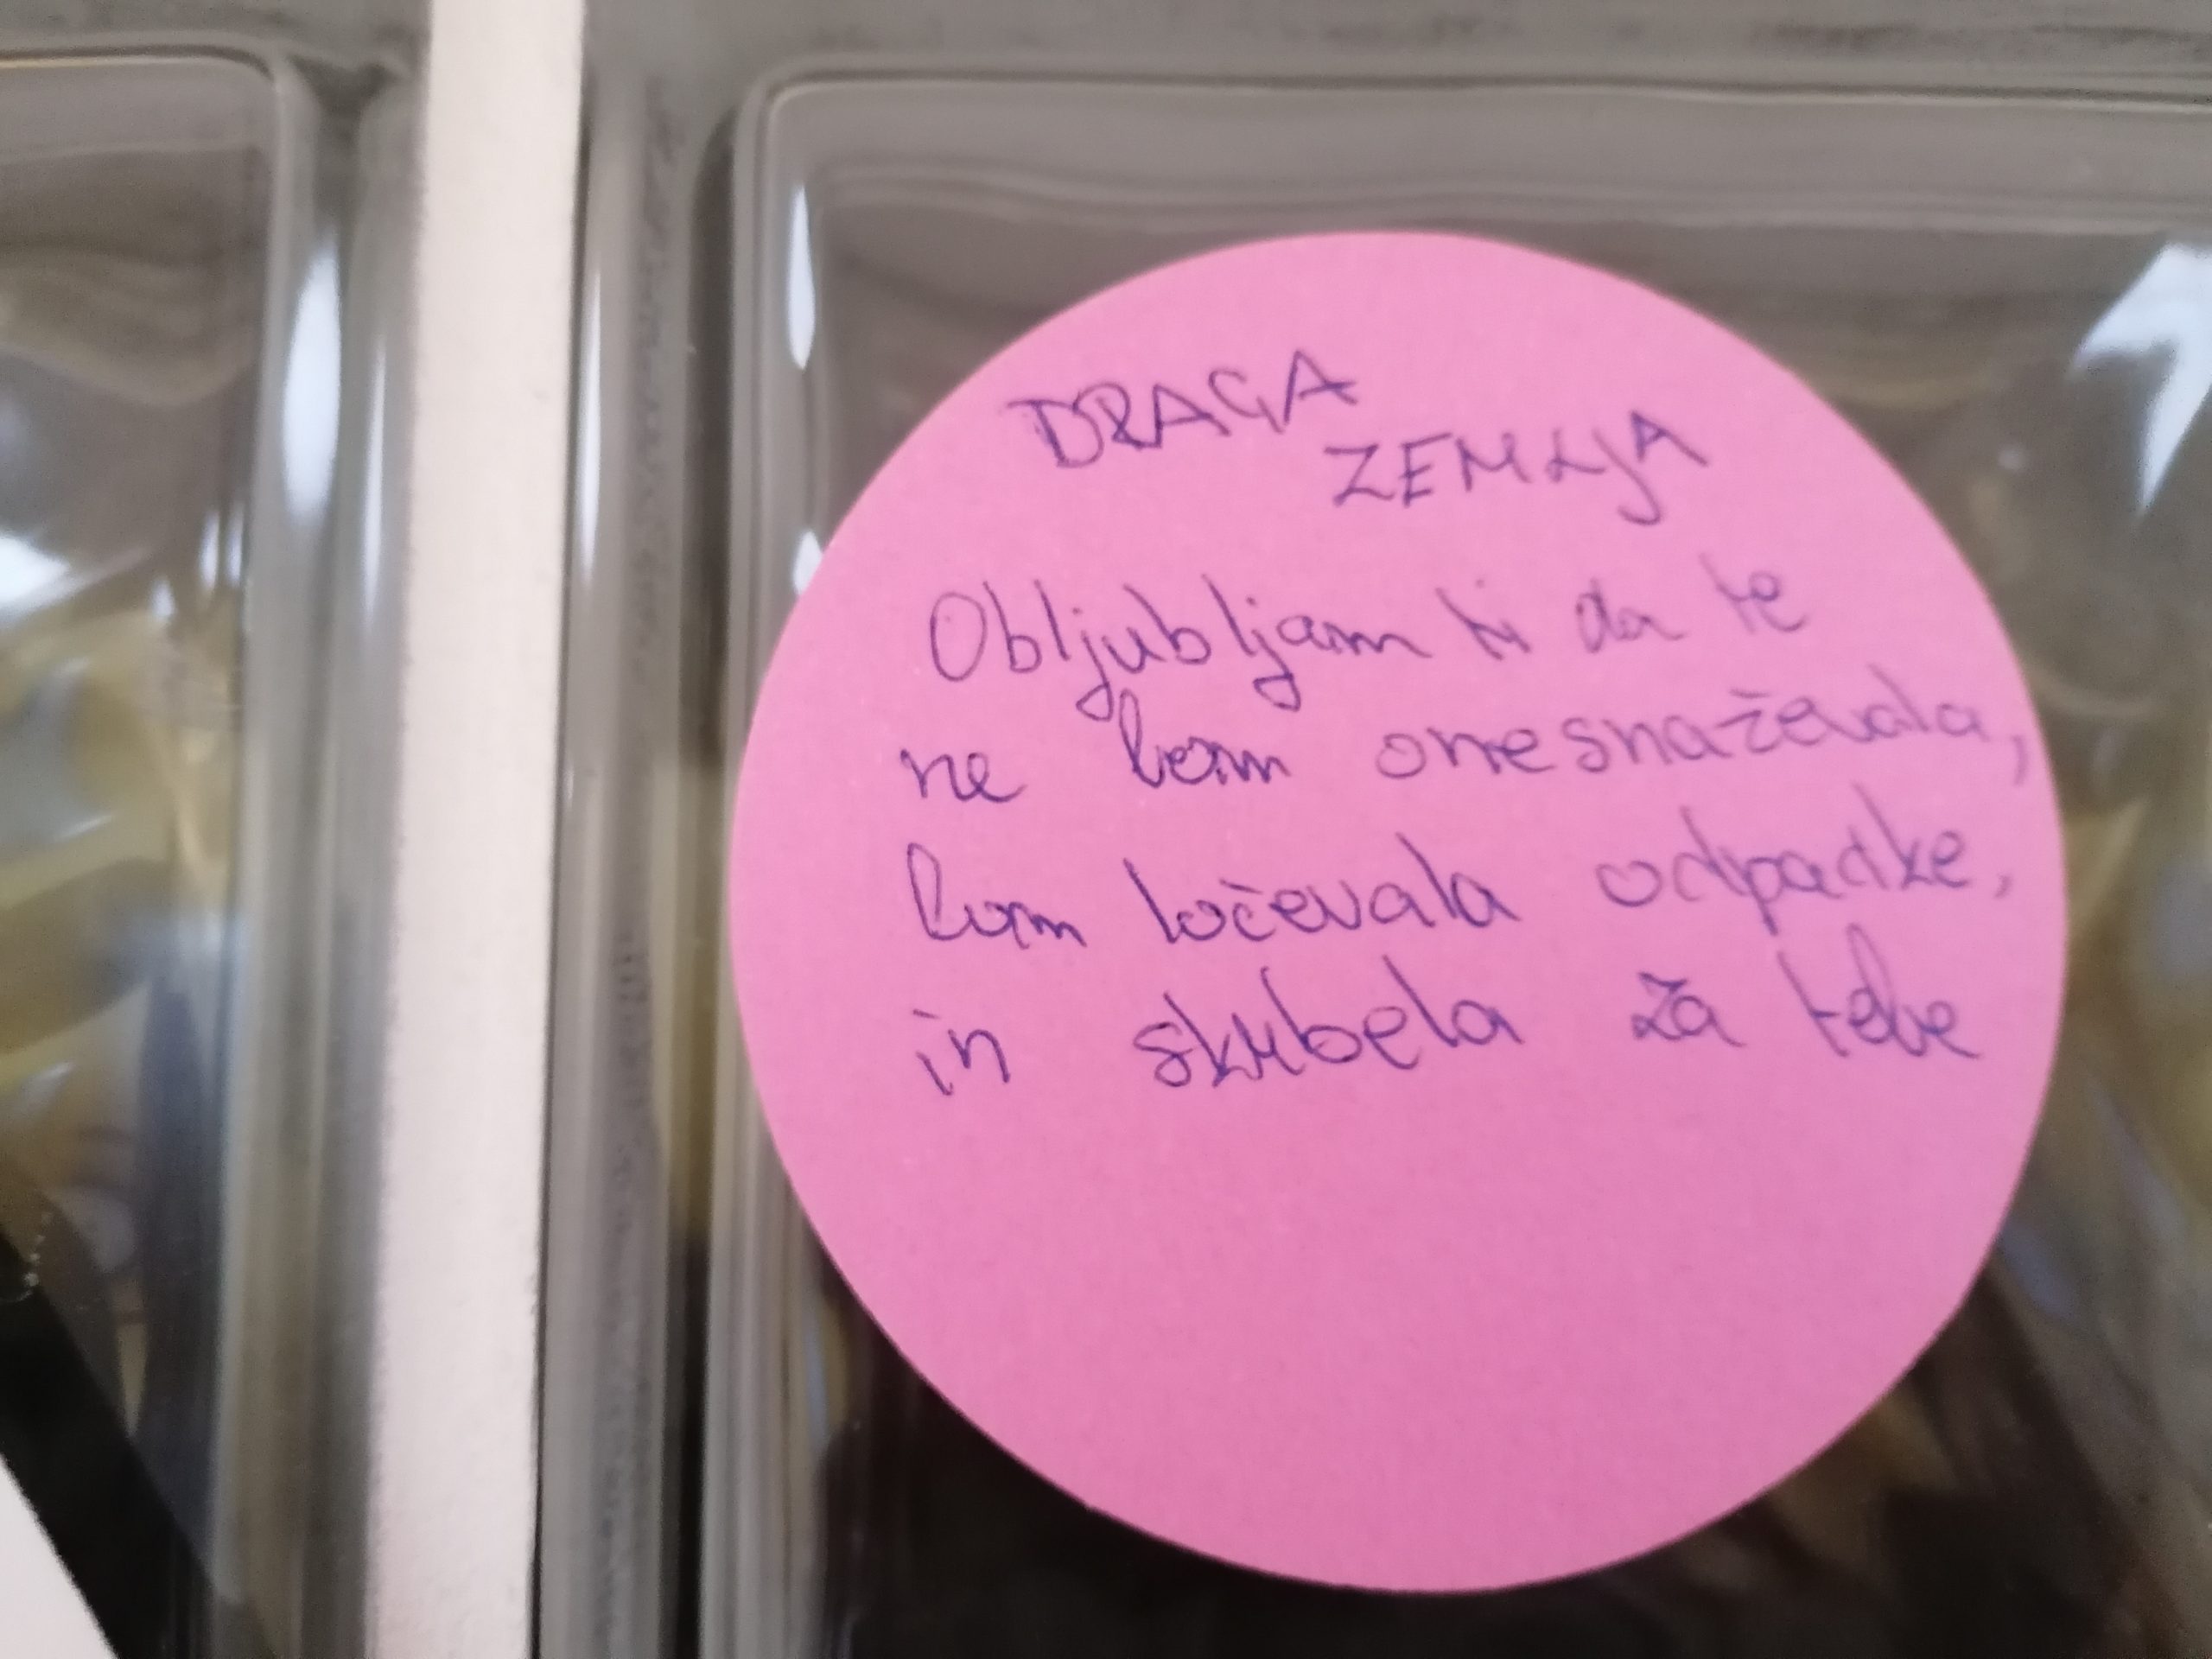 DRAGA
ZEMLJA
Obljubljam ti da te
ne bom onesnaževala,
bom ločevala odpadke,
in skrbela za tebe